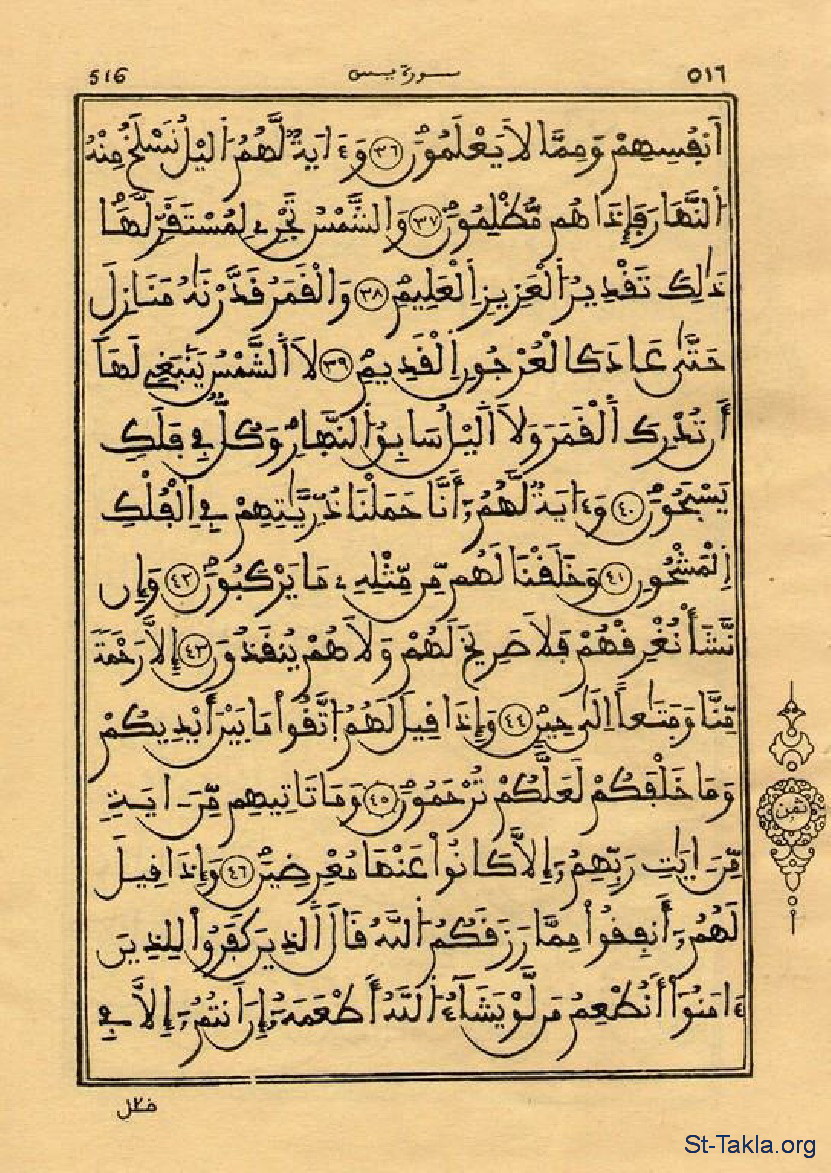 516 سورة يس ٥١٦
أَنفُسِهِمْ وَمِمَّا لَا يَعْلَمُونَ ٣٦ وَءَايَةٌ لَّهُمُ اَليْلُ نَسْلَخُ مِنْهُ
اُلنَّهَارَ فَإِذَا هُم مُّظْلِمُونَ ٣٧ وَالشَّمْسُ تَجْرِے لِمُسْتَقَرٍّ لَّهَا
ذَٰلِكَ تَقْدِيرُ اُلْعَزِيزِ اِلْعَلِيمِ ٣٨ وَالْقَمَرُ قَدَّرْنَٰهُ مَنَازِلَ
حَتَّىٰ عَادَ كَالْعُرْجُونِ اِلْقَدِيمِ ٣٩ لَا اَلشَّمْسُ يَنۢبَغِے لَهَا
أَن تُدْرِكَ اَلْقَمَرَ وَلَا اَليْلُ سَابِقُ اُلنَّهَارِ وَكُلٌّ فِے فَلَكٍ
يَسْبَحُونَ ٤٠ وَءَايَةٌ لَّهُمُۥ أَنَّا حَمَلْنَا ذُرِّيَّٰتِهِمْ فِے اِلْفُلْكِ
اِلْمَشْحُونِ ٤١ وَخَلَقْنَا لَهُم مِّن مِّثْلِهِۦ مَا يَرْكَبُونَ ٤٢ وَإِن
نَّشَأْ نُغْرِقْهُمْ فَلَا صَرِيخَ لَهُمْ وَلَا هُمْ يُنقَذُونَ ٤٣ إِلَّا رَحْمَةً
مِّنَّا وَمَتَٰعاً اِلَىٰ حِينٍ ٤٤ وَإِذَا قِيلَ لَهُمُ اُتَّقُواْ مَا بَيْنَ أَيْدِيكُمْ
وَمَا خَلْفَكُمْ لَعَلَّكُمْ تُرْحَمُونَ ٤٥ وَمَا تَاتِيهِم مِّنَ ـايَةٍ
مِّنَ ـايَٰتِ رَبِّهِمُۥ إِلَّا كَانُواْ عَنْهَا مُعْرِضِينَ ٤٦ وَإِذَا قِيلَ
لَهُمُۥ أَنفِقُواْ مِمَّا رَزَقَكُمُ اُللَّهُ قَالَ اَلذِينَ كَفَرُواْ لِلذِينَ
ءَامَنُوٓاْ أَنُطْعِمُ مَن لَّوْ يَشَآءُ اُللَّهُ أَطْعَمَهُۥٓ إِنَ اَنتُمُۥٓ إِلَّا فِے
ثمن
ضلل
St-Takla.org